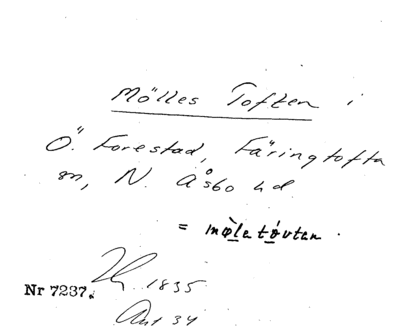 Mölles Toften i
Ö. Forestad, Färingtofta
sn, N. Åsbo hd.
= møletövten.
1835
Nr 7237.
34